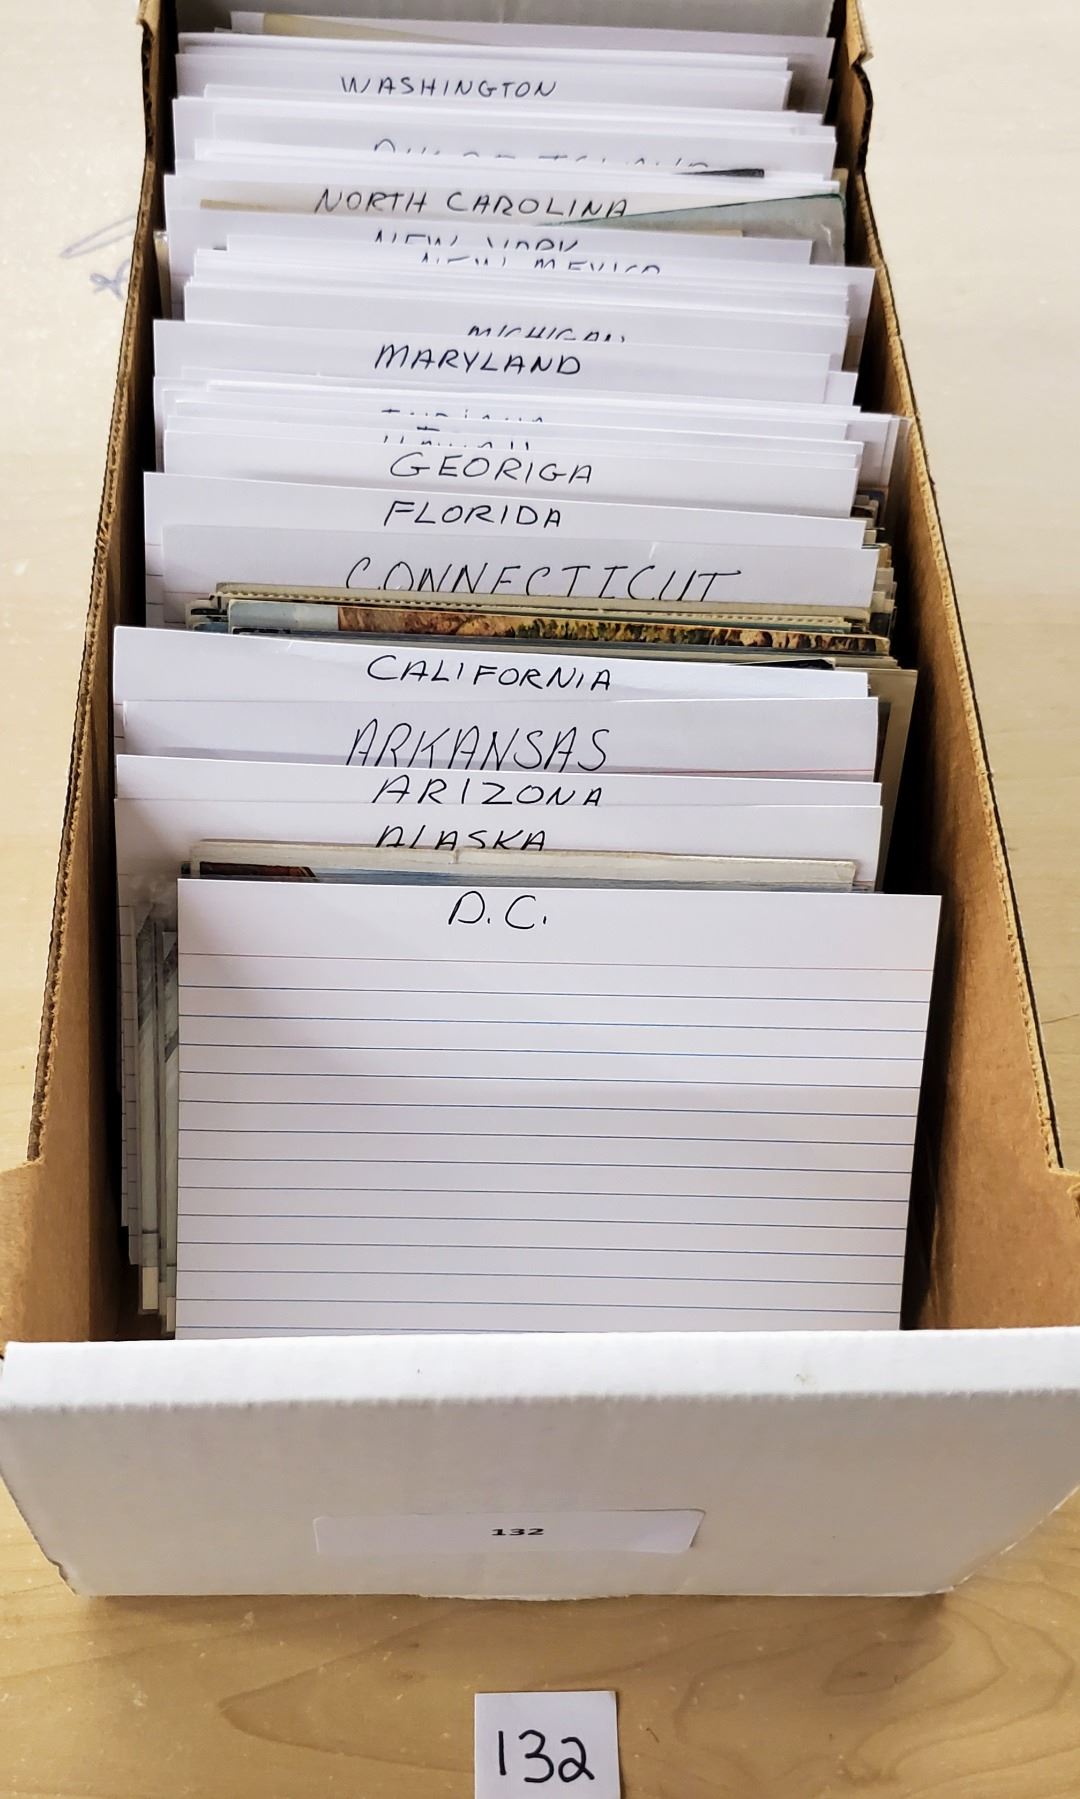 WASHINGTON
NORTH CAROLINA
NEW YORK
NEW MEXICO
MICHIGAN
MARYLAND
GEORIGA
FLORIDA
CONNECTICUT
CALIFORNIA
ARKANSAS
ARIZONA
ALASKA
D.C.
132
132